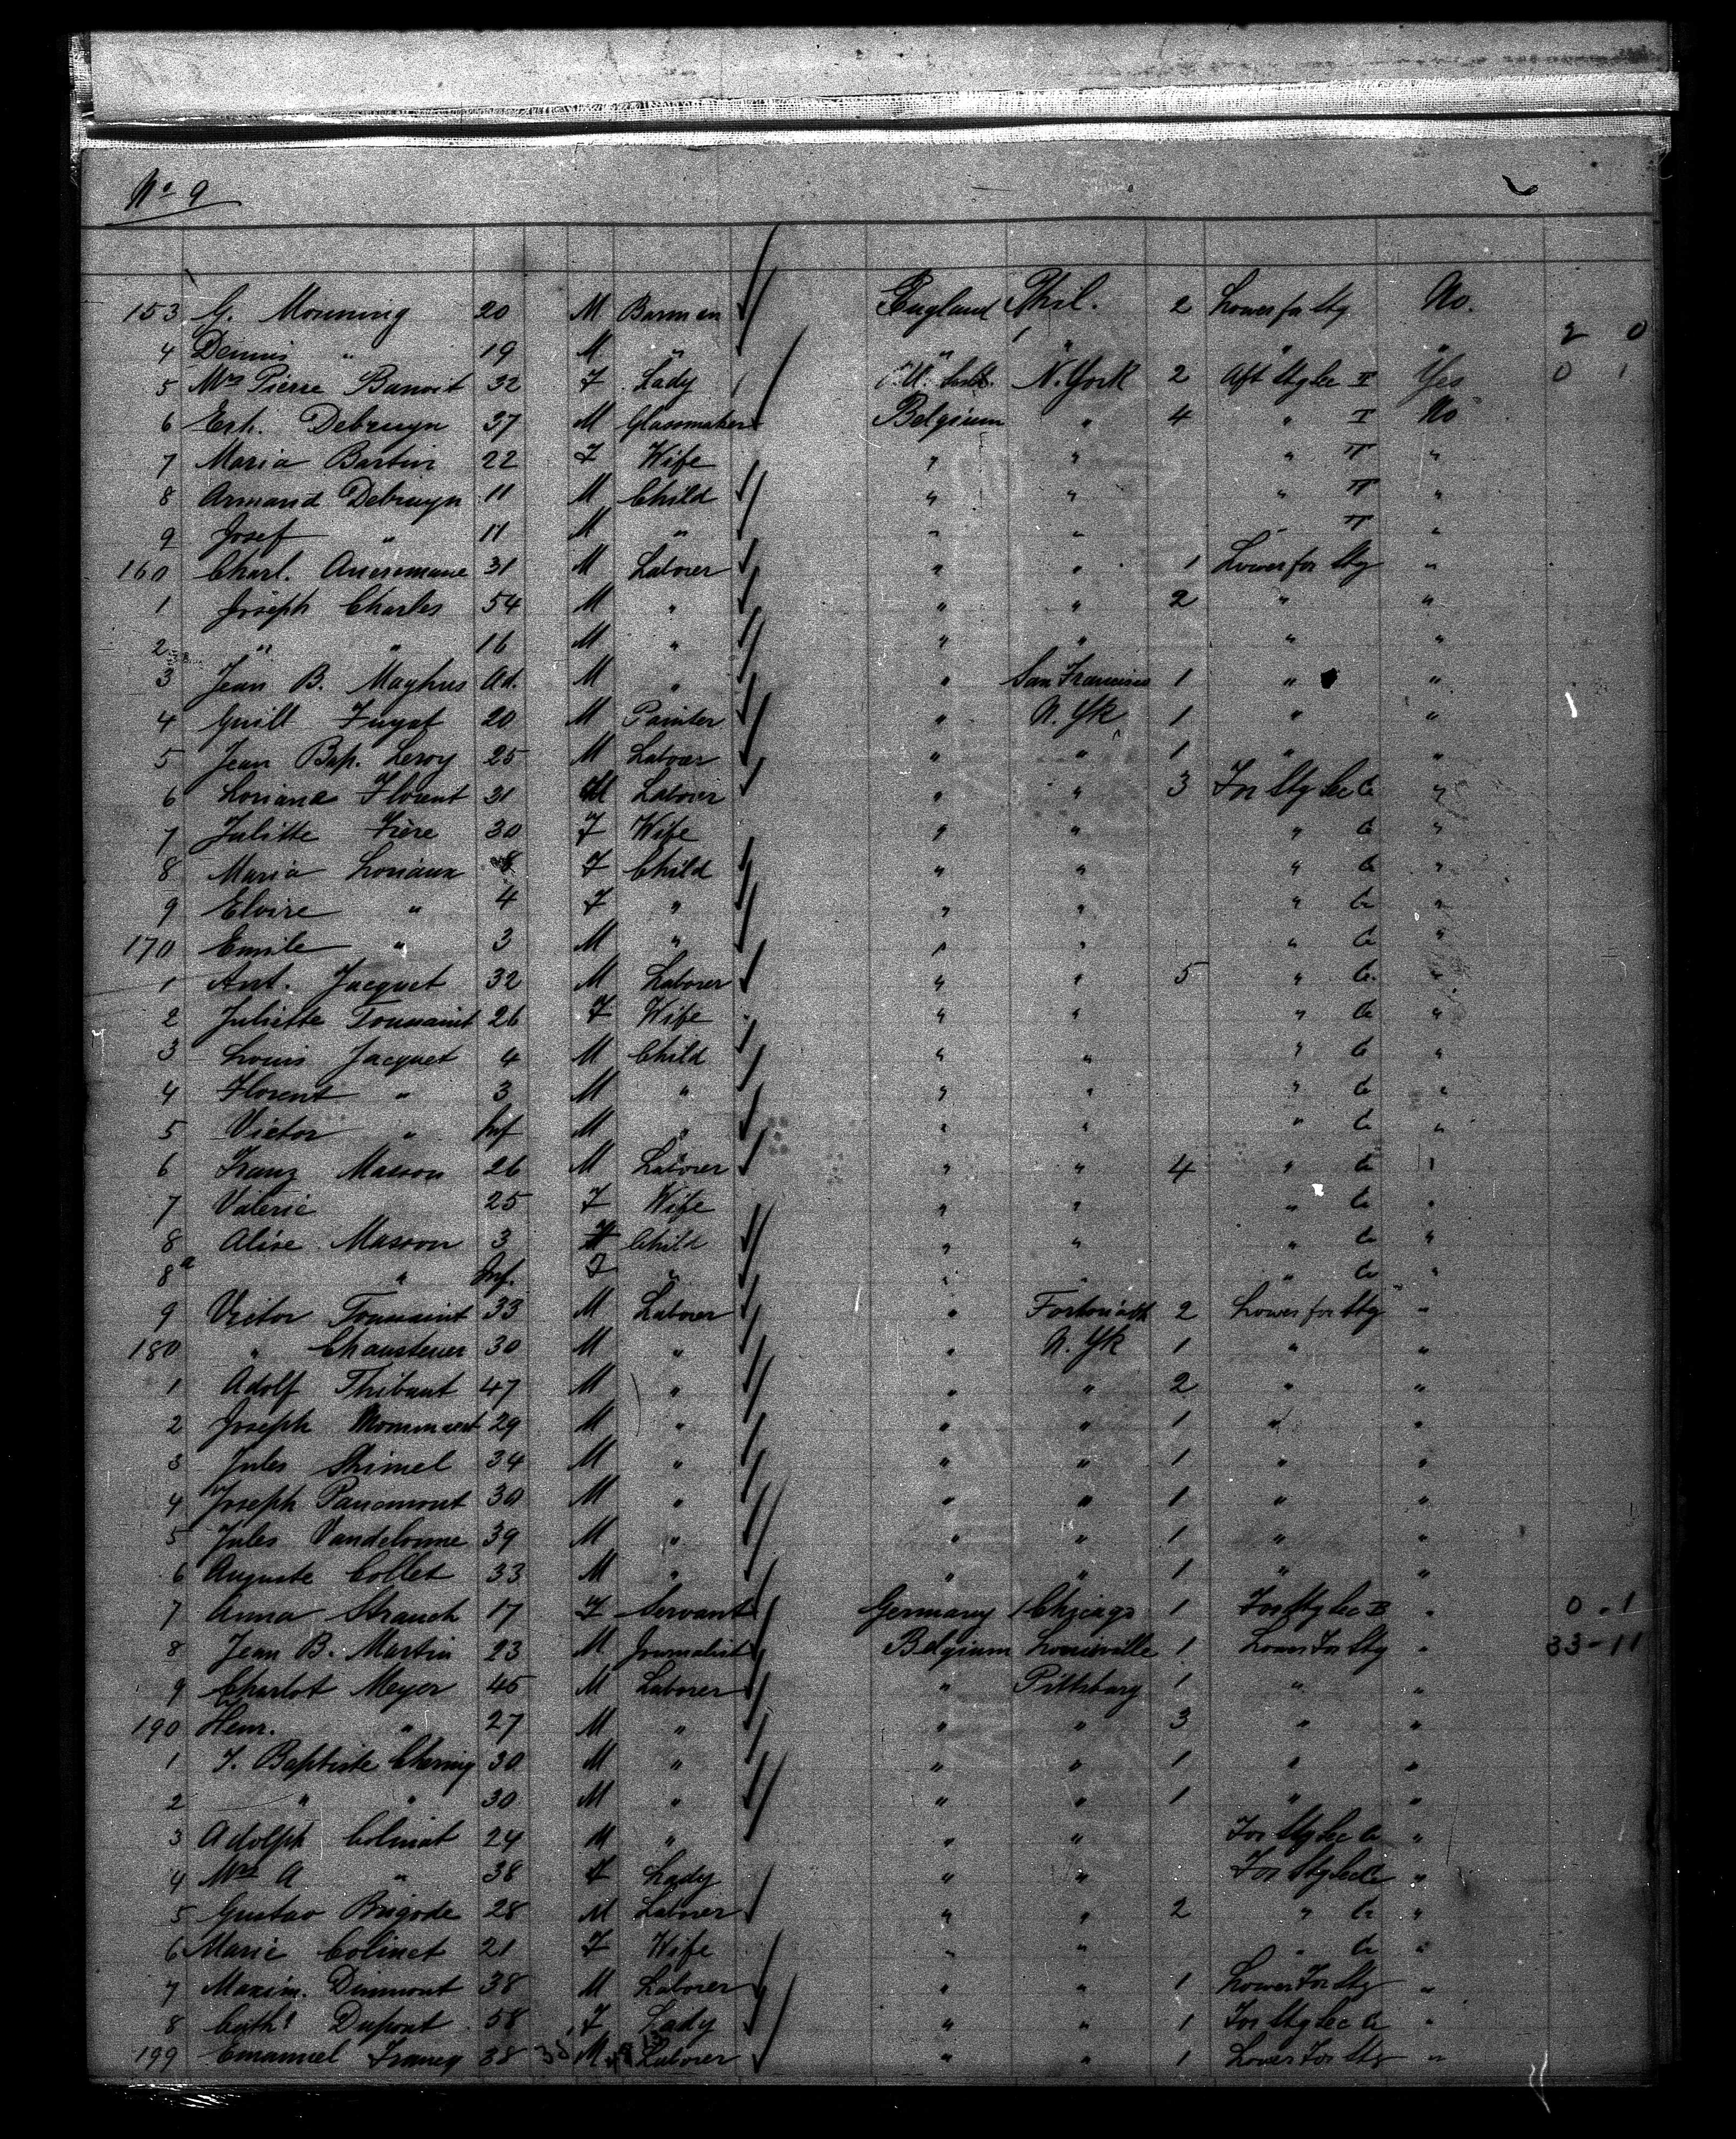 No 9
153 G. Mourning 20 M Barman England Phil. 2 Lower for Stg No.
4 Dennis " 19 M " " " " " 2 0
5 Mrs Pierre Banoit 32 F Lady N. York 2 Aft Stg Sec II Yes 0 1
6 Erh. Debruyn 37 M Glassmaker Belgium " 4 " II No
7 Maria Bartin 22 F Wife " " " II "
8 Armand Debruyn 11 M Child " " " II "
9 Josef " 11 M " " " " II "
160 Charl. 31 M Laborer " " 1 Lower for Stg "
1 Joseph Charles 54 M " " " 2 " "
2 " " 16 M " " " " "
3 Jean B. Mayhus Ad. M " " San Francisco 1 " "
4 Guill 20 M Painter " N. Yk 1 " "
5 Jean Bap. Leroy 25 M Laborer " " 1 " "
6 Loriana Florent 31 M Laborer " " 3 For Stg Sec C "
7 Julitte Frère 30 F Wife " " " C "
8 Maria Loriaux 8 F Child " " " C "
9 Elvire " 4 F " " " " C "
170 Emile " 3 M " " " " C "
1 Ant. Jacquet 32 M Laborer " " 5 " C "
2 Juliette Toussaint 26 F Wife " " " C "
3 Louis Jacquet 4 M Child " " " C "
4 Florent " 3 M " " " " C "
5 Victor " Inf M " " " " C "
6 Franz Masson 26 M Laborer " " 4 " C "
7 Valerie 25 F Wife " " " C "
8 Alise Masson 3 F Child " " " C "
8a " Inf. F " " " " C "
9 Victor Toussaint 33 M Laborer " 2 Lower for Stg "
180 " Chausteuer 30 M " " N. Yk 1 " "
1 Adolf Thibaut 47 M " " " 2 " "
2 Joseph Mommaert 29 M " " " 1 " "
3 Jules Shimel 34 M " " " 1 " "
4 Joseph Panamont 30 M " " " 1 " "
5 Jules Vandelonne 39 M " " " 1 " "
6 Auguste Collet 33 M " " " 1 " "
7 Anna Strauch 17 F Servant Germany Chicago 1 For Stg Sec B " 0 - 1
8 Jean B. Martin 23 M Journalist Belgium Louisville 1 Lower For Stg " 33 - 11
9 Charlot Meyer 45 M Laborer " Pittsburg 1 " "
190 Henr. " 27 M " " " 3 " "
1 J. Baptiste 30 M " " " 1 " "
2 " " 30 M " " " 1 " "
3 Adolph Colinat 24 M " " " For Stg Sec C "
4 Mrs A " 38 F Lady " " For Stg Sec C "
5 Gustav Brigode 28 M Laborer " " 2 " C "
6 Marie Colinet 21 F Wife " " " C "
7 Maxim. Dumont 38 M Laborer " " 1 Lower For Stg "
8 Cath. Dupont 58 F Lady " " 1 For Stg Sec C "
199 Emanuel Francq 38 M Laborer " " 1 Lower For Stg "